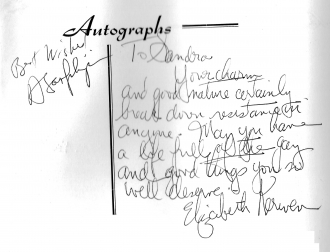 Autographs
Best Wishes
To Sandra
Your charm
and good nature certainly
break down resistance in
anyone. May you have
a life full of the gay
and good things you so
well deserve
Elizabeth